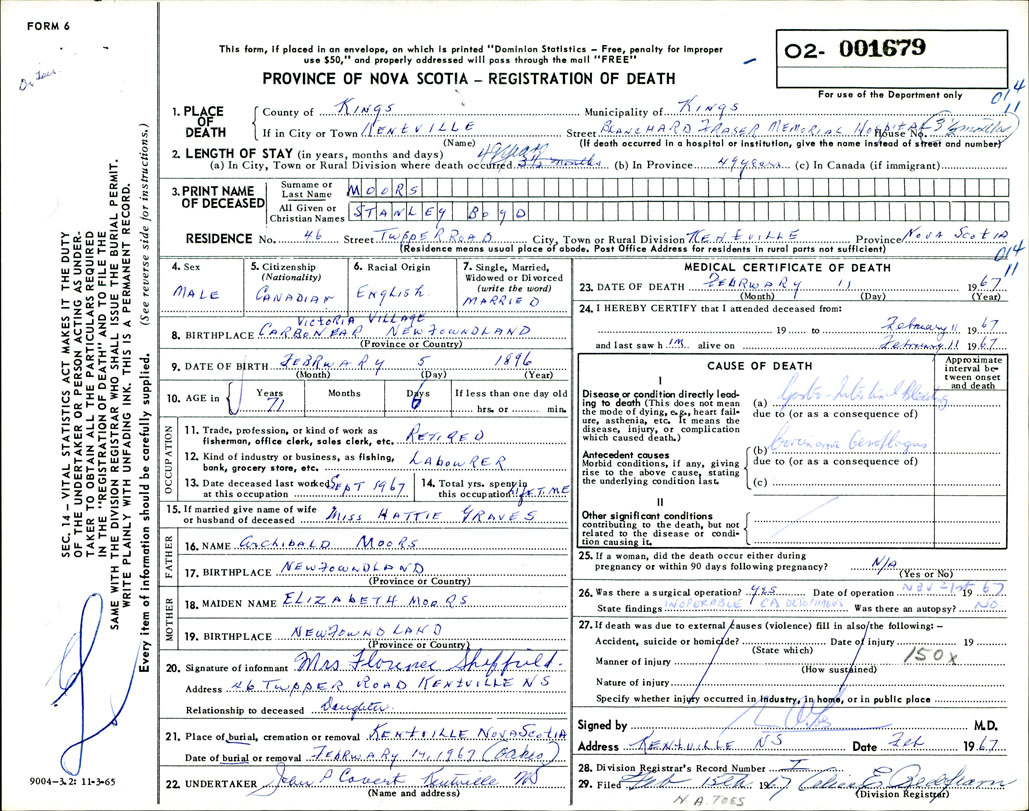 FORM 6
This form, if placed in an envelope, on which is printed "Dominion Statistics – Free, penalty for improper
use $50," and properly addressed will pass through the mail "FREE"
PROVINCE OF NOVA SCOTIA – REGISTRATION OF DEATH
O2- 001679
For use of the Department only
014
11
1. PLACE OF DEATH
County of KINGS Municipality of KINGS
If in City or Town KENTVILLE Street BLANCHARD FRASER MEMORIAL HOSPITAL House No. 3½ months
(Name) (If death occurred in a hospital or institution, give the name instead of street and number)
2. LENGTH OF STAY (in years, months and days) 49 years
(a) In City, Town or Rural Division where death occurred 3½ months (b) In Province 49 years (c) In Canada (if immigrant)
3. PRINT NAME OF DECEASED
Surname or Last Name MOORS
All Given or Christian Names STANLEY BOYD
RESIDENCE No. 46 Street TUPPER ROAD City, Town or Rural Division KENTVILLE Province NOVA SCOTIA
(Residence means usual place of abode. Post Office Address for residents in rural parts not sufficient)
014
11
4. Sex MALE
5. Citizenship (Nationality) CANADIAN
6. Racial Origin ENGLISH
7. Single, Married, Widowed or Divorced (write the word) MARRIED
VICTORIA VILLAGE
8. BIRTHPLACE CARBONEAR NEWFOUNDLAND
(Province or Country)
9. DATE OF BIRTH FEBRUARY 5 1896
(Month) (Day) (Year)
10. AGE in Years 71 Months Days 6 If less than one day old
hrs. or min.
OCCUPATION
11. Trade, profession, or kind of work as
fisherman, office clerk, sales clerk, etc. RETIRED
12. Kind of industry or business, as fishing,
bank, grocery store, etc. LABOURER
13. Date deceased last worked at this occupation SEPT 1967
14. Total yrs. spent in this occupation LIFETIME
15. If married give name of wife
or husband of deceased MISS HATTIE GRAVES
FATHER
16. NAME ARCHIBALD MOORS
17. BIRTHPLACE NEWFOUNDLAND
(Province or Country)
MOTHER
18. MAIDEN NAME ELIZABETH MOORS
19. BIRTHPLACE NEWFOUNDLAND
(Province or Country)
20. Signature of informant Mrs. Florence Sheffield
Address 46 TUPPER ROAD KENTVILLE NS
Relationship to deceased Daughter
21. Place of burial, cremation or removal KENTVILLE NOVA SCOTIA
Date of burial or removal FEBRUARY 14, 1967 (Oaks)
22. UNDERTAKER John P Covert Kentville NS
(Name and address)
MEDICAL CERTIFICATE OF DEATH
23. DATE OF DEATH FEBRUARY 11 1967
(Month) (Day) (Year)
24. I HEREBY CERTIFY that I attended deceased from:
19 to February 11 1967
and last saw h im alive on February 11 1967
CAUSE OF DEATH
Approximate interval between onset and death
I
Disease or condition directly leading to death (This does not mean the mode of dying, e.g., heart failure, asthenia, etc. It means the disease, injury, or complication which caused death.)
(a) Gastro-Intestinal Bleeding
due to (or as a consequence of)
Antecedent causes
Morbid conditions, if any, giving rise to the above cause, stating the underlying condition last.
(b) Carcinoma Oesophagus
due to (or as a consequence of)
(c)
II
Other significant conditions
contributing to the death, but not related to the disease or condition causing it.
25. If a woman, did the death occur either during
pregnancy or within 90 days following pregnancy? N/A
(Yes or No)
26. Was there a surgical operation? yes Date of operation NOV 21st 1967
State findings INOPERABLE CA OESOPHAGUS Was there an autopsy? NO
27. If death was due to external causes (violence) fill in also the following: –
Accident, suicide or homicide? Date of injury 19
(State which)
150x
Manner of injury
(How sustained)
Nature of injury
Specify whether injury occurred in industry, in home, or in public place
Signed by M.D.
Address KENTVILLE NS Date Feb 1967
28. Division Registrar's Record Number
29. Filed Feb 15th 1967 Alice E.
(Division Registrar)
N.A. TOES
9004–3.2: 11-3-65
SEC. 14 – VITAL STATISTICS ACT MAKES IT THE DUTY
OF THE UNDERTAKER OR PERSON ACTING AS UNDER-
TAKER TO OBTAIN ALL THE PARTICULARS REQUIRED
IN THE "REGISTRATION OF DEATH" AND TO FILE THE
SAME WITH THE DIVISION REGISTRAR WHO SHALL ISSUE THE BURIAL PERMIT.
WRITE PLAINLY WITH UNFADING INK. THIS IS A PERMANENT RECORD.
Every item of information should be carefully supplied. (See reverse side for instructions.)